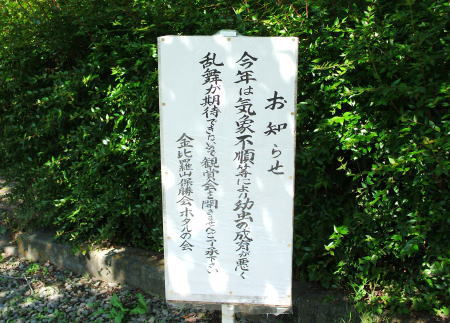 お知らせ
今年は気象不順等により幼虫の成育が悪く
乱舞が期待できないので観賞会を開きませんご了承下さい
金比羅山保勝会ホタルの会